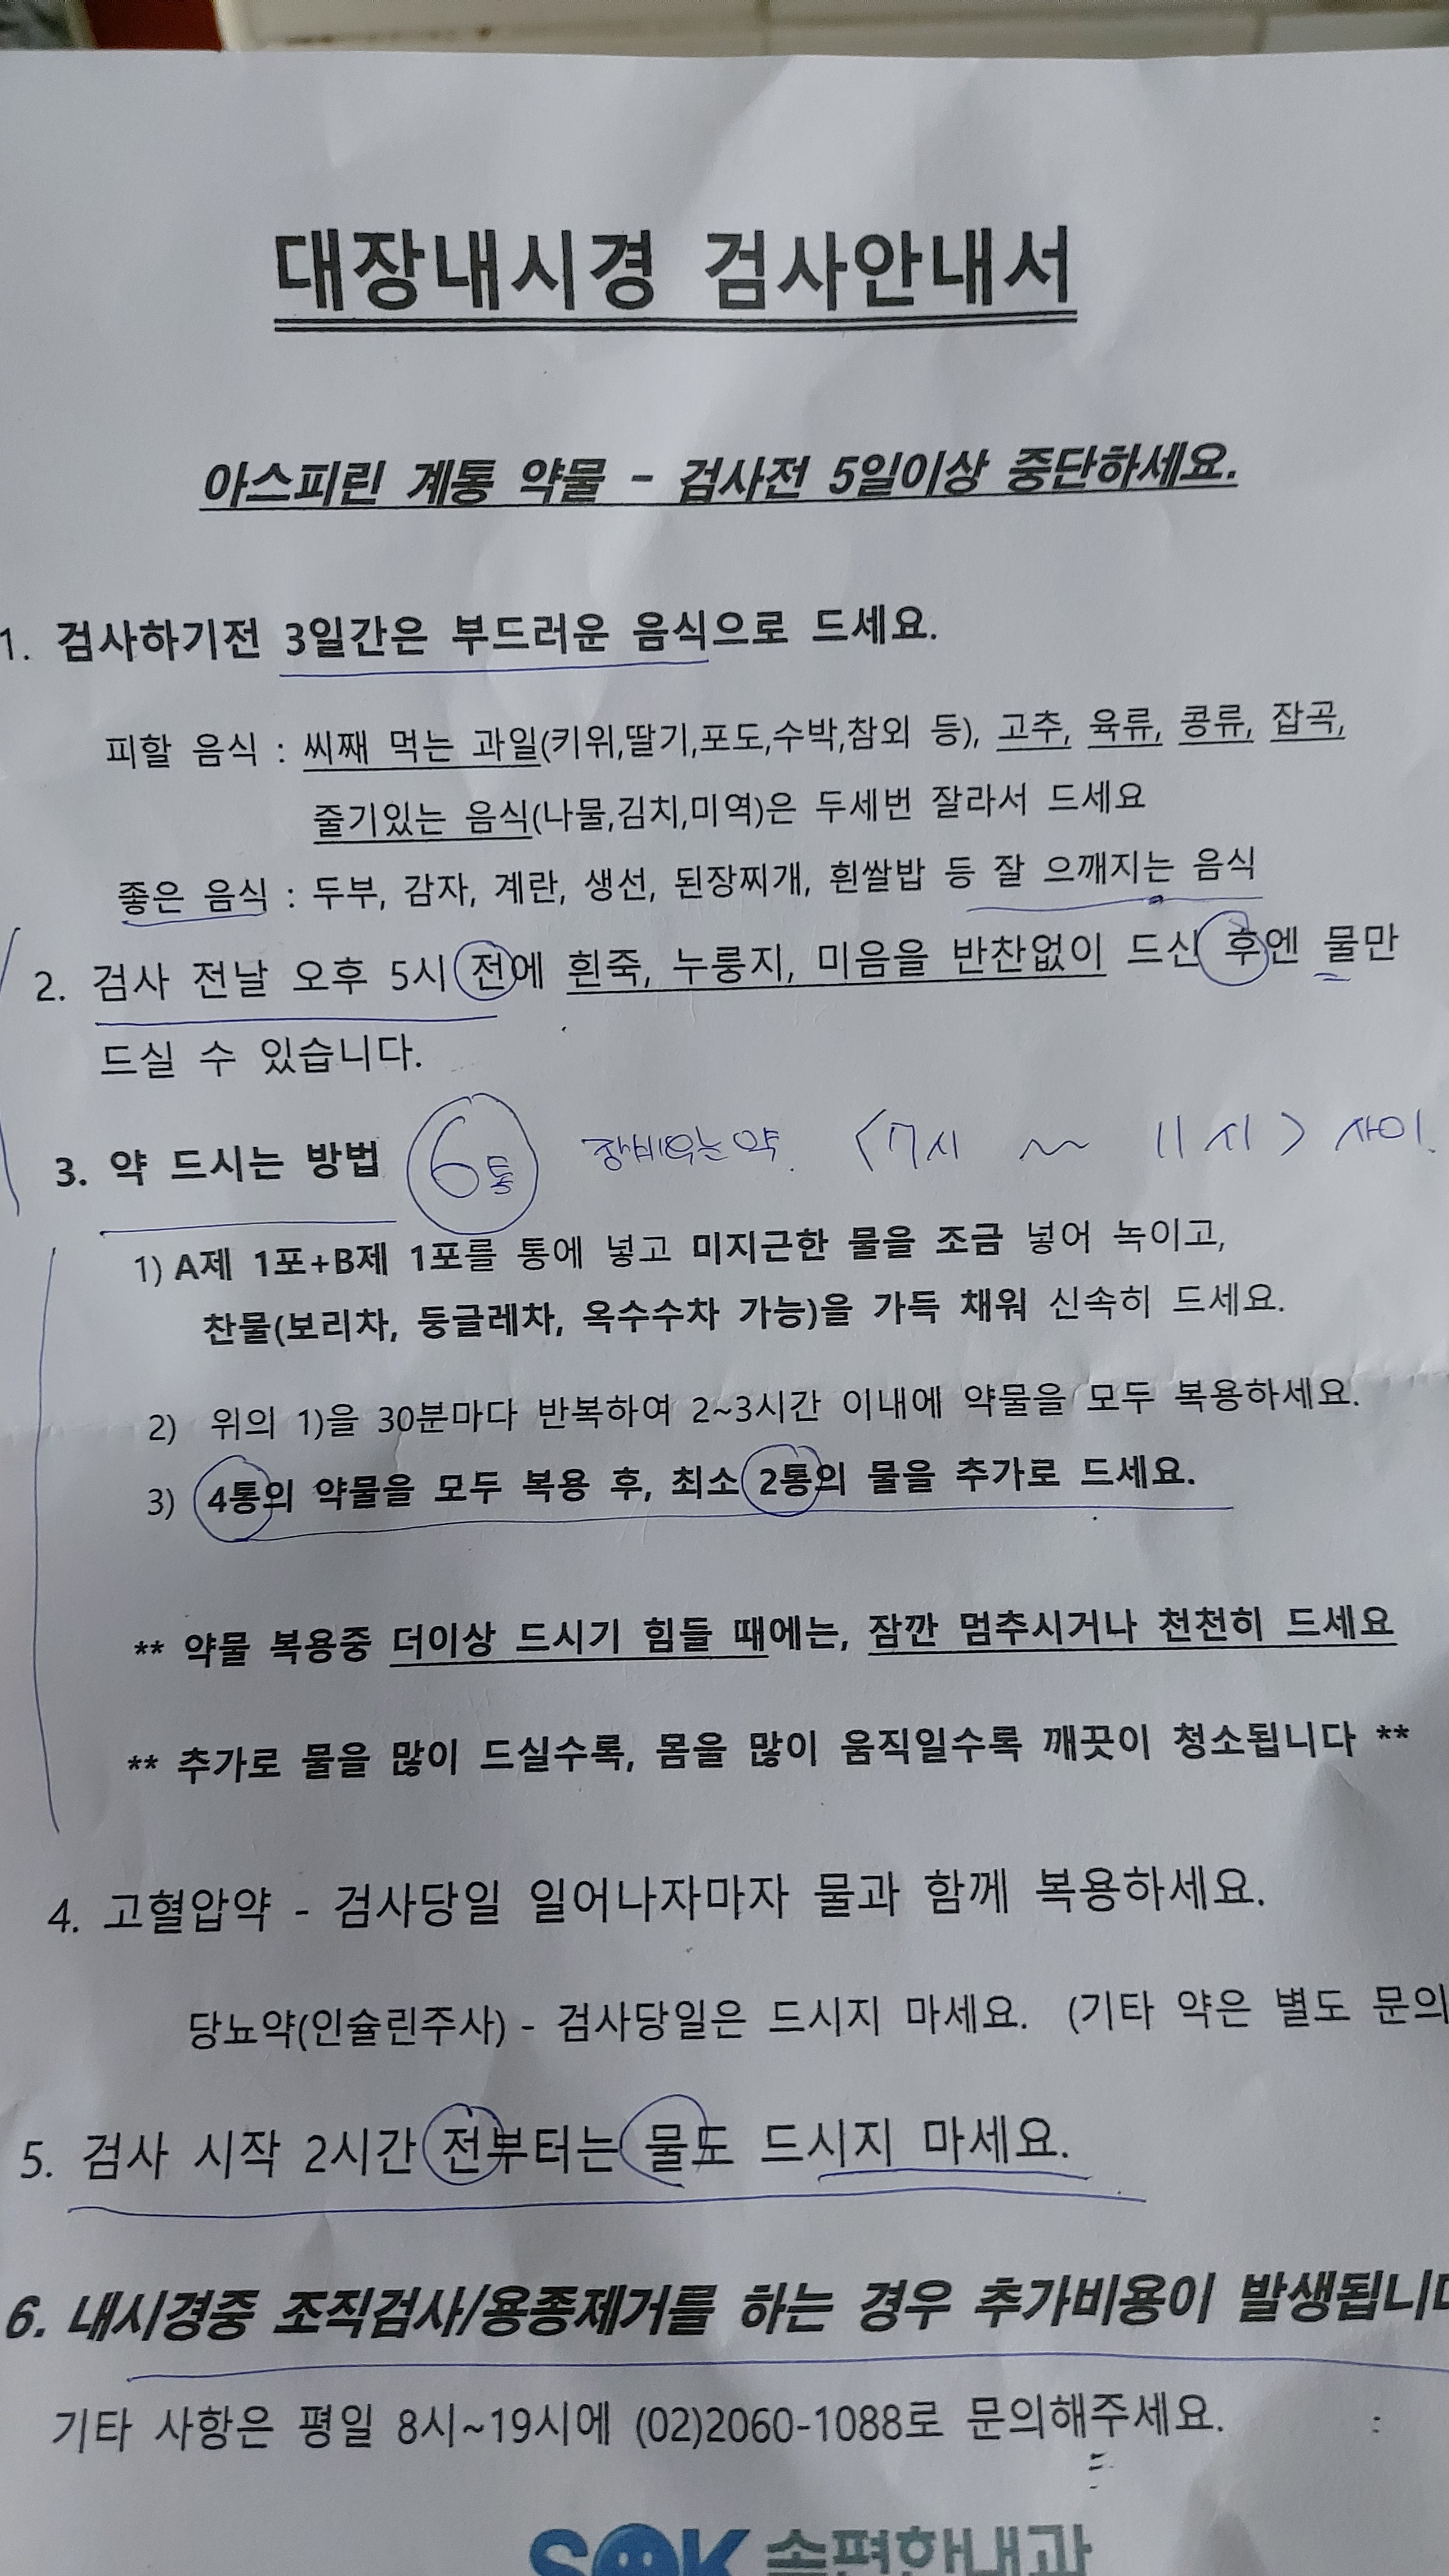 대장내시경 검사안내서
아스피린 계통 약물 - 검사전 5일이상 중단하세요.
1. 검사하기전 3일간은 부드러운 음식으로 드세요.
피할 음식 : 씨째 먹는 과일(키위,딸기,포도,수박,참외 등), 고추, 육류, 콩류, 잡곡,
줄기있는 음식(나물,김치,미역)은 두세번 잘라서 드세요
좋은 음식 : 두부, 감자, 계란, 생선, 된장찌개, 흰쌀밥 등 잘 으깨지는 음식
2. 검사 전날 오후 5시 전에 흰죽, 누룽지, 미음을 반찬없이 드신 후엔 물만
드실 수 있습니다.
3. 약 드시는 방법 6통 장비우는 약. <7시 ~ 11시> 사이.
1) A제 1포+B제 1포를 통에 넣고 미지근한 물을 조금 넣어 녹이고,
찬물(보리차, 둥글레차, 옥수수차 가능)을 가득 채워 신속히 드세요.
2) 위의 1)을 30분마다 반복하여 2~3시간 이내에 약물을 모두 복용하세요.
3) 4통의 약물을 모두 복용 후, 최소 2통의 물을 추가로 드세요.
** 약물 복용중 더이상 드시기 힘들 때에는, 잠깐 멈추시거나 천천히 드세요
** 추가로 물을 많이 드실수록, 몸을 많이 움직일수록 깨끗이 청소됩니다 **
4. 고혈압약 - 검사당일 일어나자마자 물과 함께 복용하세요.
당뇨약(인슐린주사) - 검사당일은 드시지 마세요. (기타 약은 별도 문의
5. 검사 시작 2시간 전부터는 물도 드시지 마세요.
6. 내시경중 조직검사/용종제거를 하는 경우 추가비용이 발생됩니다
기타 사항은 평일 8시~19시에 (02)2060-1088로 문의해주세요.
SOK 속편한내과